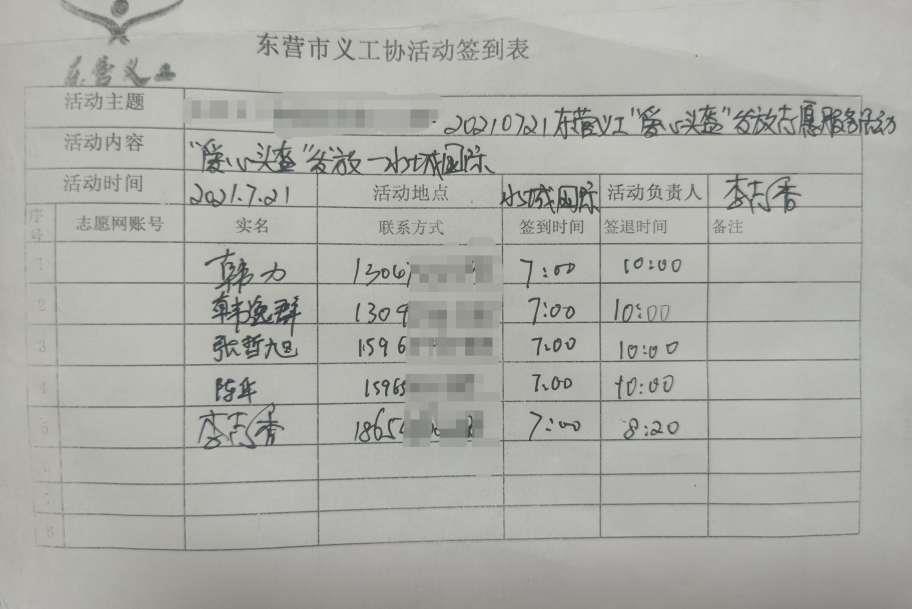 东营义工
东营市义工协活动签到表
活动主题 20210721东营义工"爱心头盔"发放志愿服务活动
活动内容 "爱心头盔"发放—水城国际
活动时间 2021.7.21 活动地点 水城国际 活动负责人 李志香
序号 志愿网账号 实名 联系方式 签到时间 签退时间 备注
1 韩力 1306 7:00 10:00
2 韩逸群 1309 7:00 10:00
3 张哲旭 1596 7.00 10:00
4 陈华 15965 7.00 10:00
5 李志香 1865 7:00 8:20
6
7
8